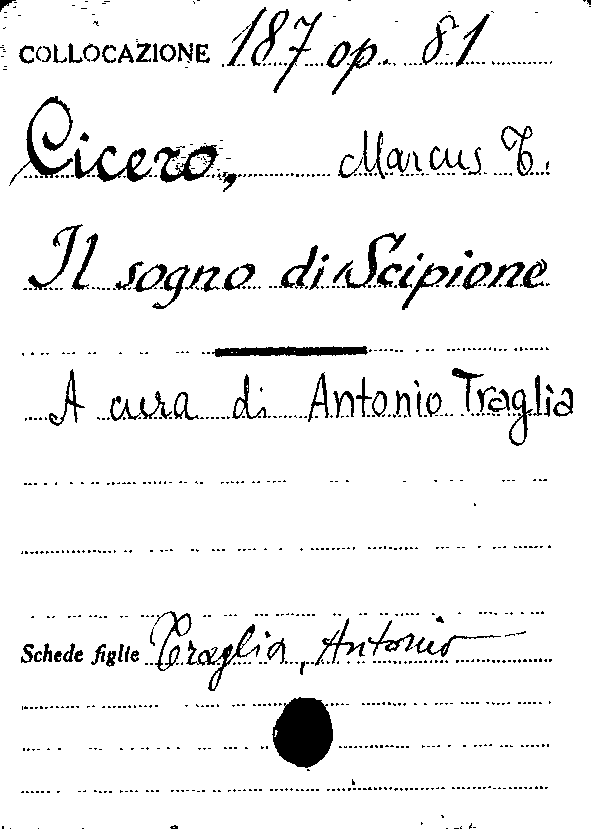 COLLOCAZIONE 187 op. 81
Cicero, Marcus T.
Il sogno di Scipione
A cura di Antonio Traglia
Schede figlie Traglia, Antonio